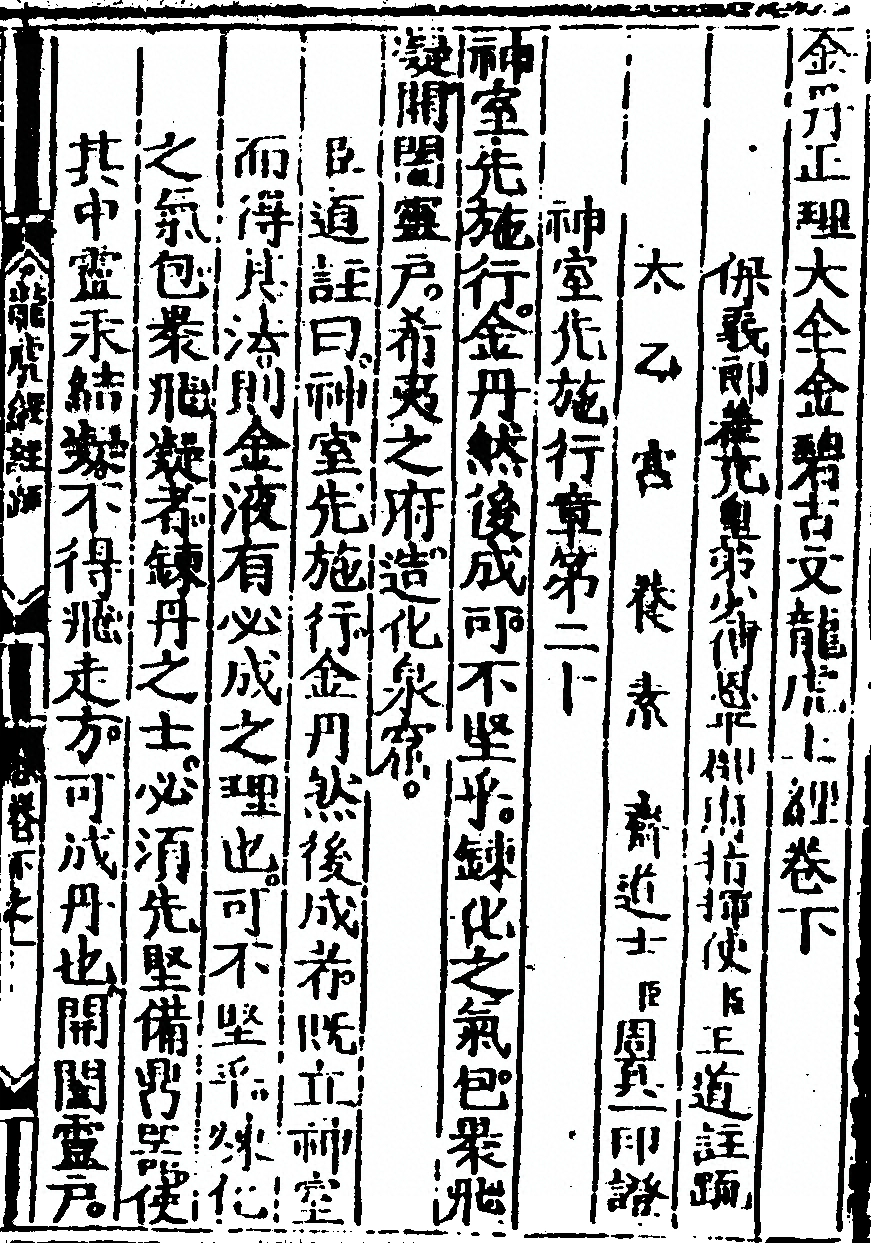 金丹正理大全金碧古文龍虎上經卷下
保義郎差充皇弟少傅恩平郡府指揮使臣王道註疏
太乙宮養素齋道士臣周真一印證
神室先施行章第二十
神室先施行。金丹然後成。可不堅乎。鍊化之氣。包褁飛
凝。開闔靈戶。希夷之府。造化泉窟。
臣道註曰。神室先施行。金丹然後成者。既立神室
而得其法。則金液有必成之理也。可不堅乎。煉化
之氣包褁飛凝者。鍊丹之士。必須先堅備鼎器。使
其中靈汞結凝。不得飛走。方可成丹也。開闔靈戶。
龍虎經註疏
卷下之一